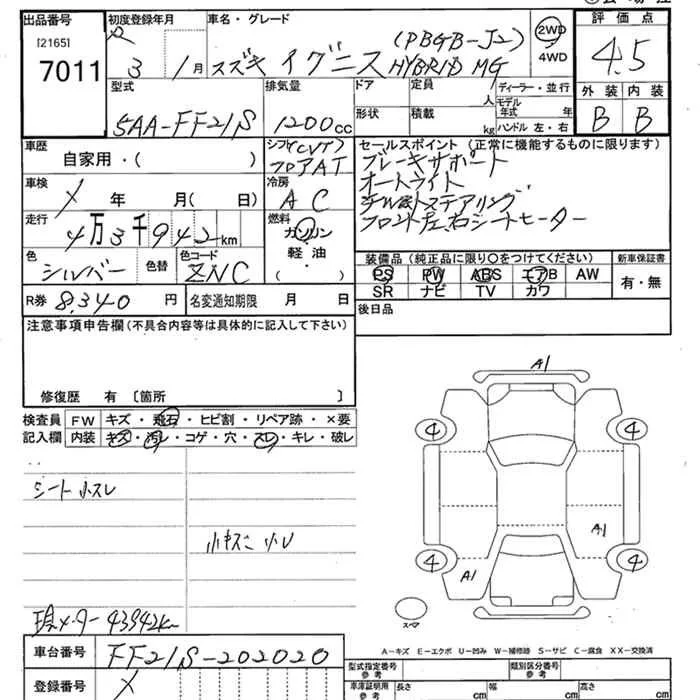 出品番号
[2165]
7011
初度登録年月
R 3 1月
車名・グレード
スズキ イグニス (PBGB-J2)
HYBRID MG
2WD
4WD
評価点
4.5
外装 内装
B B
型式
5AA-FF21S
排気量
1200cc
ドア
定員
人
形状
積載
kg
ディーラー・並行
モデル年式 年
ハンドル 左・右
車歴
自家用・( )
シフト(CVT)
フロアAT
車検
X 年 月( 日)
冷房
AC
走行
4万3千942km
燃料
ガソリン
・
軽油
( )
色
シルバー
色替
色コード
ZNC
セールスポイント (正常に機能するものに限ります)
ブレーキサポート
オートライト
ステアリング
フロント左右シートヒーター
装備品 (純正品に限り○をつけてください)
新車保証書
PS PW ABS エアB AW
SR ナビ TV カワ
有・無
R券 8,340 円
名変通知期限 月 日
後日品
注意事項申告欄 (不具合内容等は具体的に記入して下さい)
修復歴 有 〔箇所 〕
検査員
記入欄
FW キズ・飛石・ヒビ割・リペア跡・×要
内装 キズ・汚レ・コゲ・穴・スレ・キレ・破レ
シート小スレ
現メーター 43942km
A1
4 4
A1
4 4
A1
スペア
A-キズ E-エクボ U-凹み W-補修跡 S-サビ C-腐食 XX-交換済
車台番号
FF21S-202020
登録番号
X
型式指定番号
参考
類別区分番号
参考
車庫証明用
参考
長さ cm
幅 cm
高さ cm